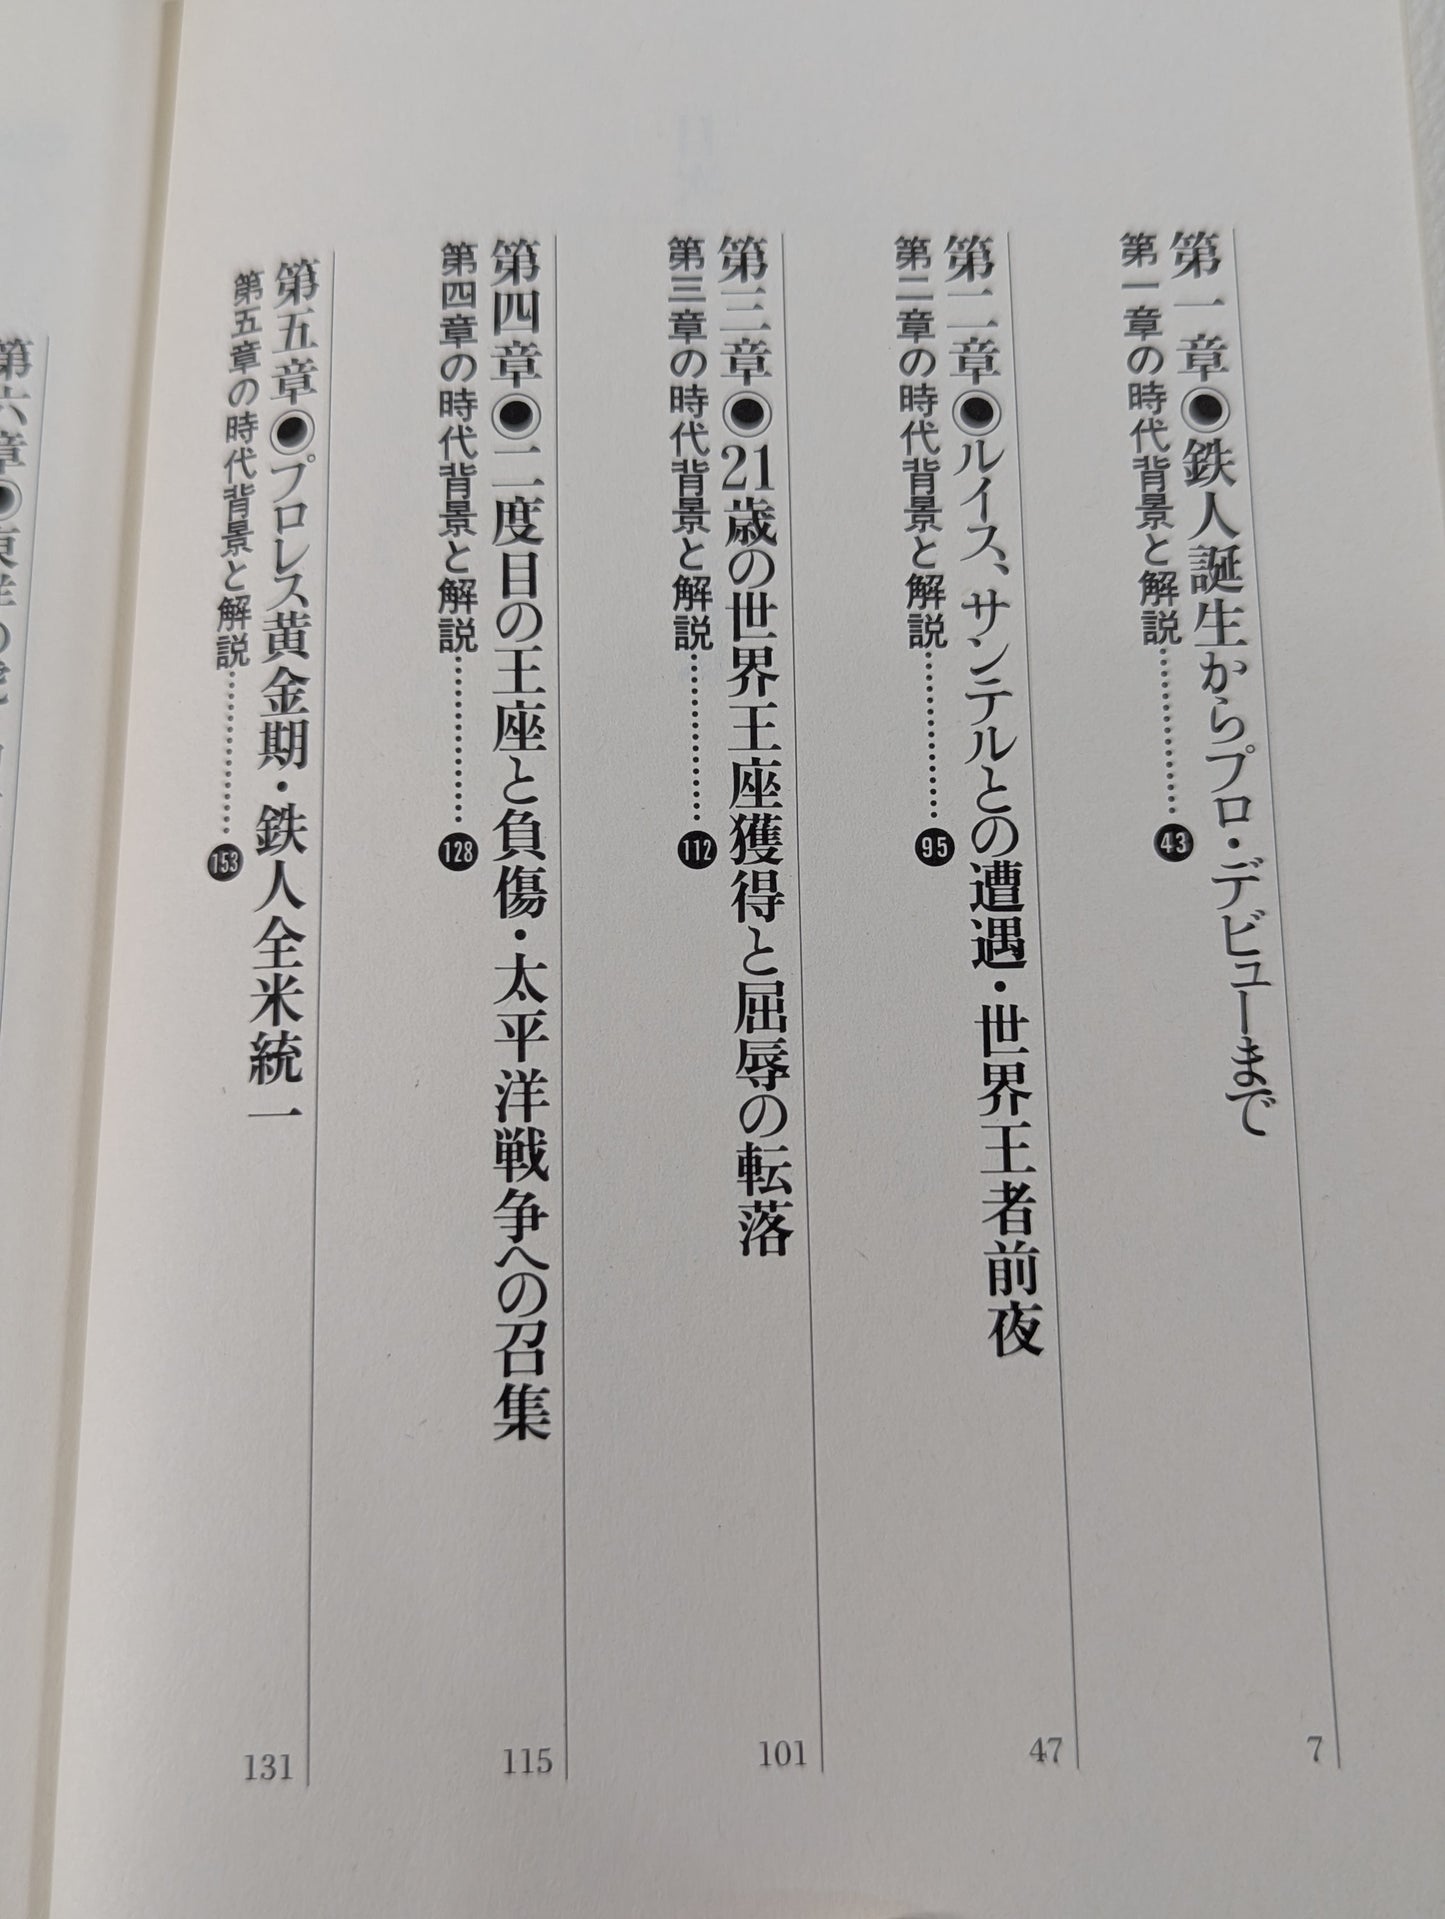 第一章●鉄人誕生からプロ・デビューまで 7
第一章の時代背景と解説…………43
第二章●ルイス、サンテルとの遭遇・世界王者前夜 47
第二章の時代背景と解説…………95
第三章●21歳の世界王座獲得と屈辱の転落 101
第三章の時代背景と解説…………112
第四章●二度目の王座と負傷・太平洋戦争への召集 115
第四章の時代背景と解説…………128
第五章●プロレス黄金期・鉄人全米統一 131
第五章の時代背景と解説…………153
第六章●東洋の